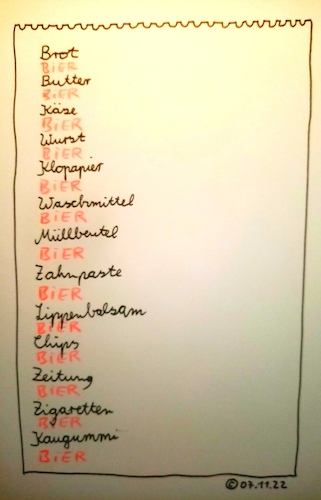 Brot
BiER
Butter
BiER
Käse
BiER
Wurst
BiER
Klopapier
BiER
Waschmittel
BiER
Müllbeutel
BiER
Zahnpaste
BiER
Lippenbalsam
BiER
Chips
BiER
Zeitung
BiER
Zigaretten
BiER
Kaugummi
BiER
© 07.11.22